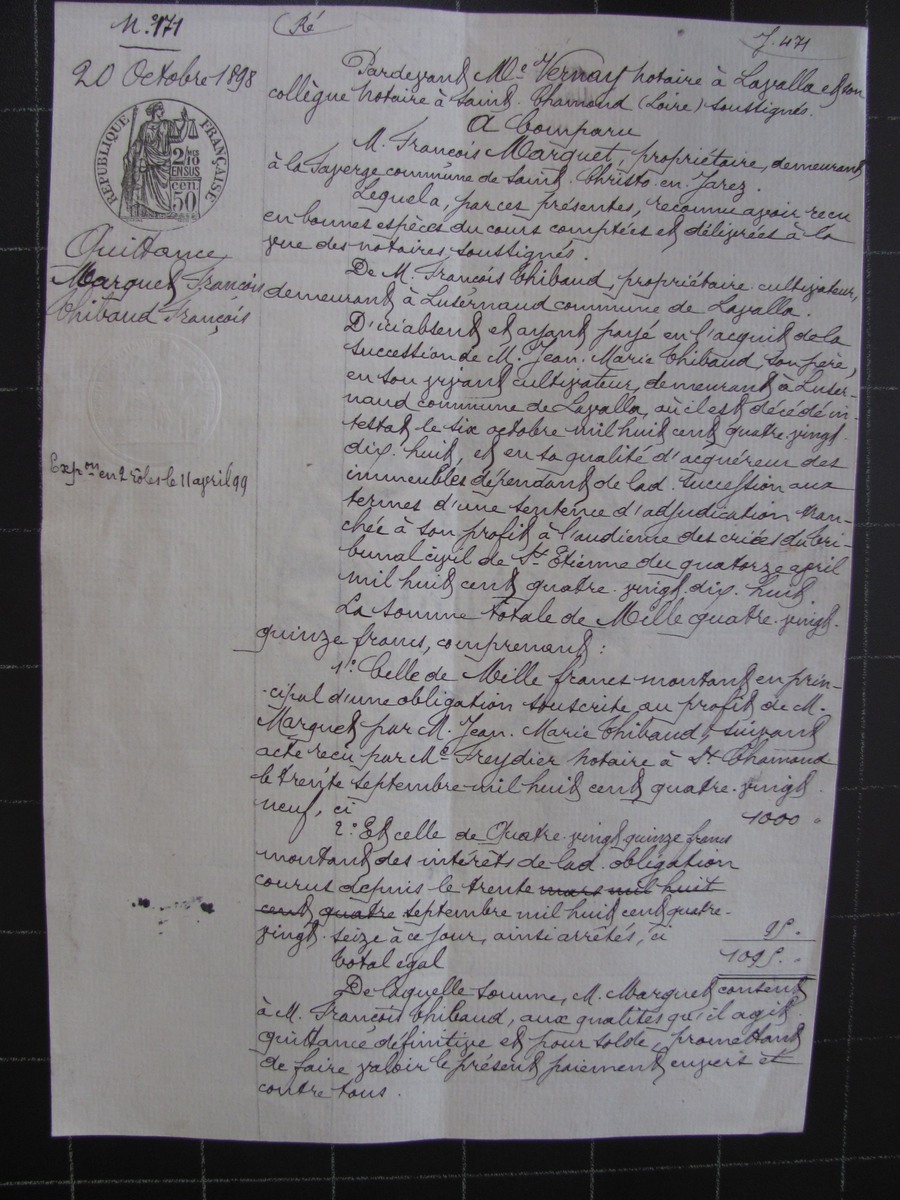 N.° 171
Ré
J. 471
20 Octobre 1898
RÉPUBLIQUE FRANÇAISE
2/10 EN SUS
cen.
50
Quittance
Marquet François
Thibaud François
Exp.on en 2 rôles le 11 avril 99
Pardevant Me Vernay notaire à Lavalla et son
collègue notaire à Saint-Chamond (Loire) soussignés.
A Comparu
M. François Marquet, propriétaire, demeurant
à la commune de Saint-Christo-en-Jarez.
Lequel a, par ces présentes, reconnu avoir reçu
en bonnes espèces du cours comptées et délivrées à la
vue des notaires soussignés.
De M. François Thibaud, propriétaire-cultivateur,
demeurant à Luzernaud commune de Lavalla.
D'ici absent et ayant payé en l'acquit de la
succession de M. Jean-Marie Thibaud, son père,
en son vivant cultivateur, demeurant à Luzer-
naud commune de Lavalla, où il est décédé in-
testat le six octobre mil huit cent quatre-vingt-
dix-huit, et en sa qualité d'acquéreur des
immeubles dépendant de lad. succession aux
termes d'une sentence d'adjudication tran-
chée à son profit à l'audience des criées du tri-
bunal civil de St Etienne du quatorze april
mil huit cent quatre-vingt-dix-huit.
La somme totale de Mille quatre-vingt-
quinze francs, comprenant :
1.° Celle de Mille francs montant en prin-
cipal d'une obligation souscrite au profit de M.
Marquet par M. Jean-Marie Thibaud, suivant
acte reçu par Me Freydier notaire à St Chamond
le trente septembre mil huit cent quatre-vingt-
neuf, ci 1000 "
2.° Et celle de Quatre-vingt-quinze francs
montant des intérêts de lad. obligation
courus depuis le trente mars mil huit
cent quatre septembre mil huit cent quatre-
vingt-seize à ce jour, ainsi arrêtés, ci 95. "
Total égal 1095. "
De laquelle somme, M. Marquet consent
à M. François Thibaud, aux qualités qu'il agit
quittance définitive et pour solde, promettant
de faire valoir le présent paiement envers et
contre tous.